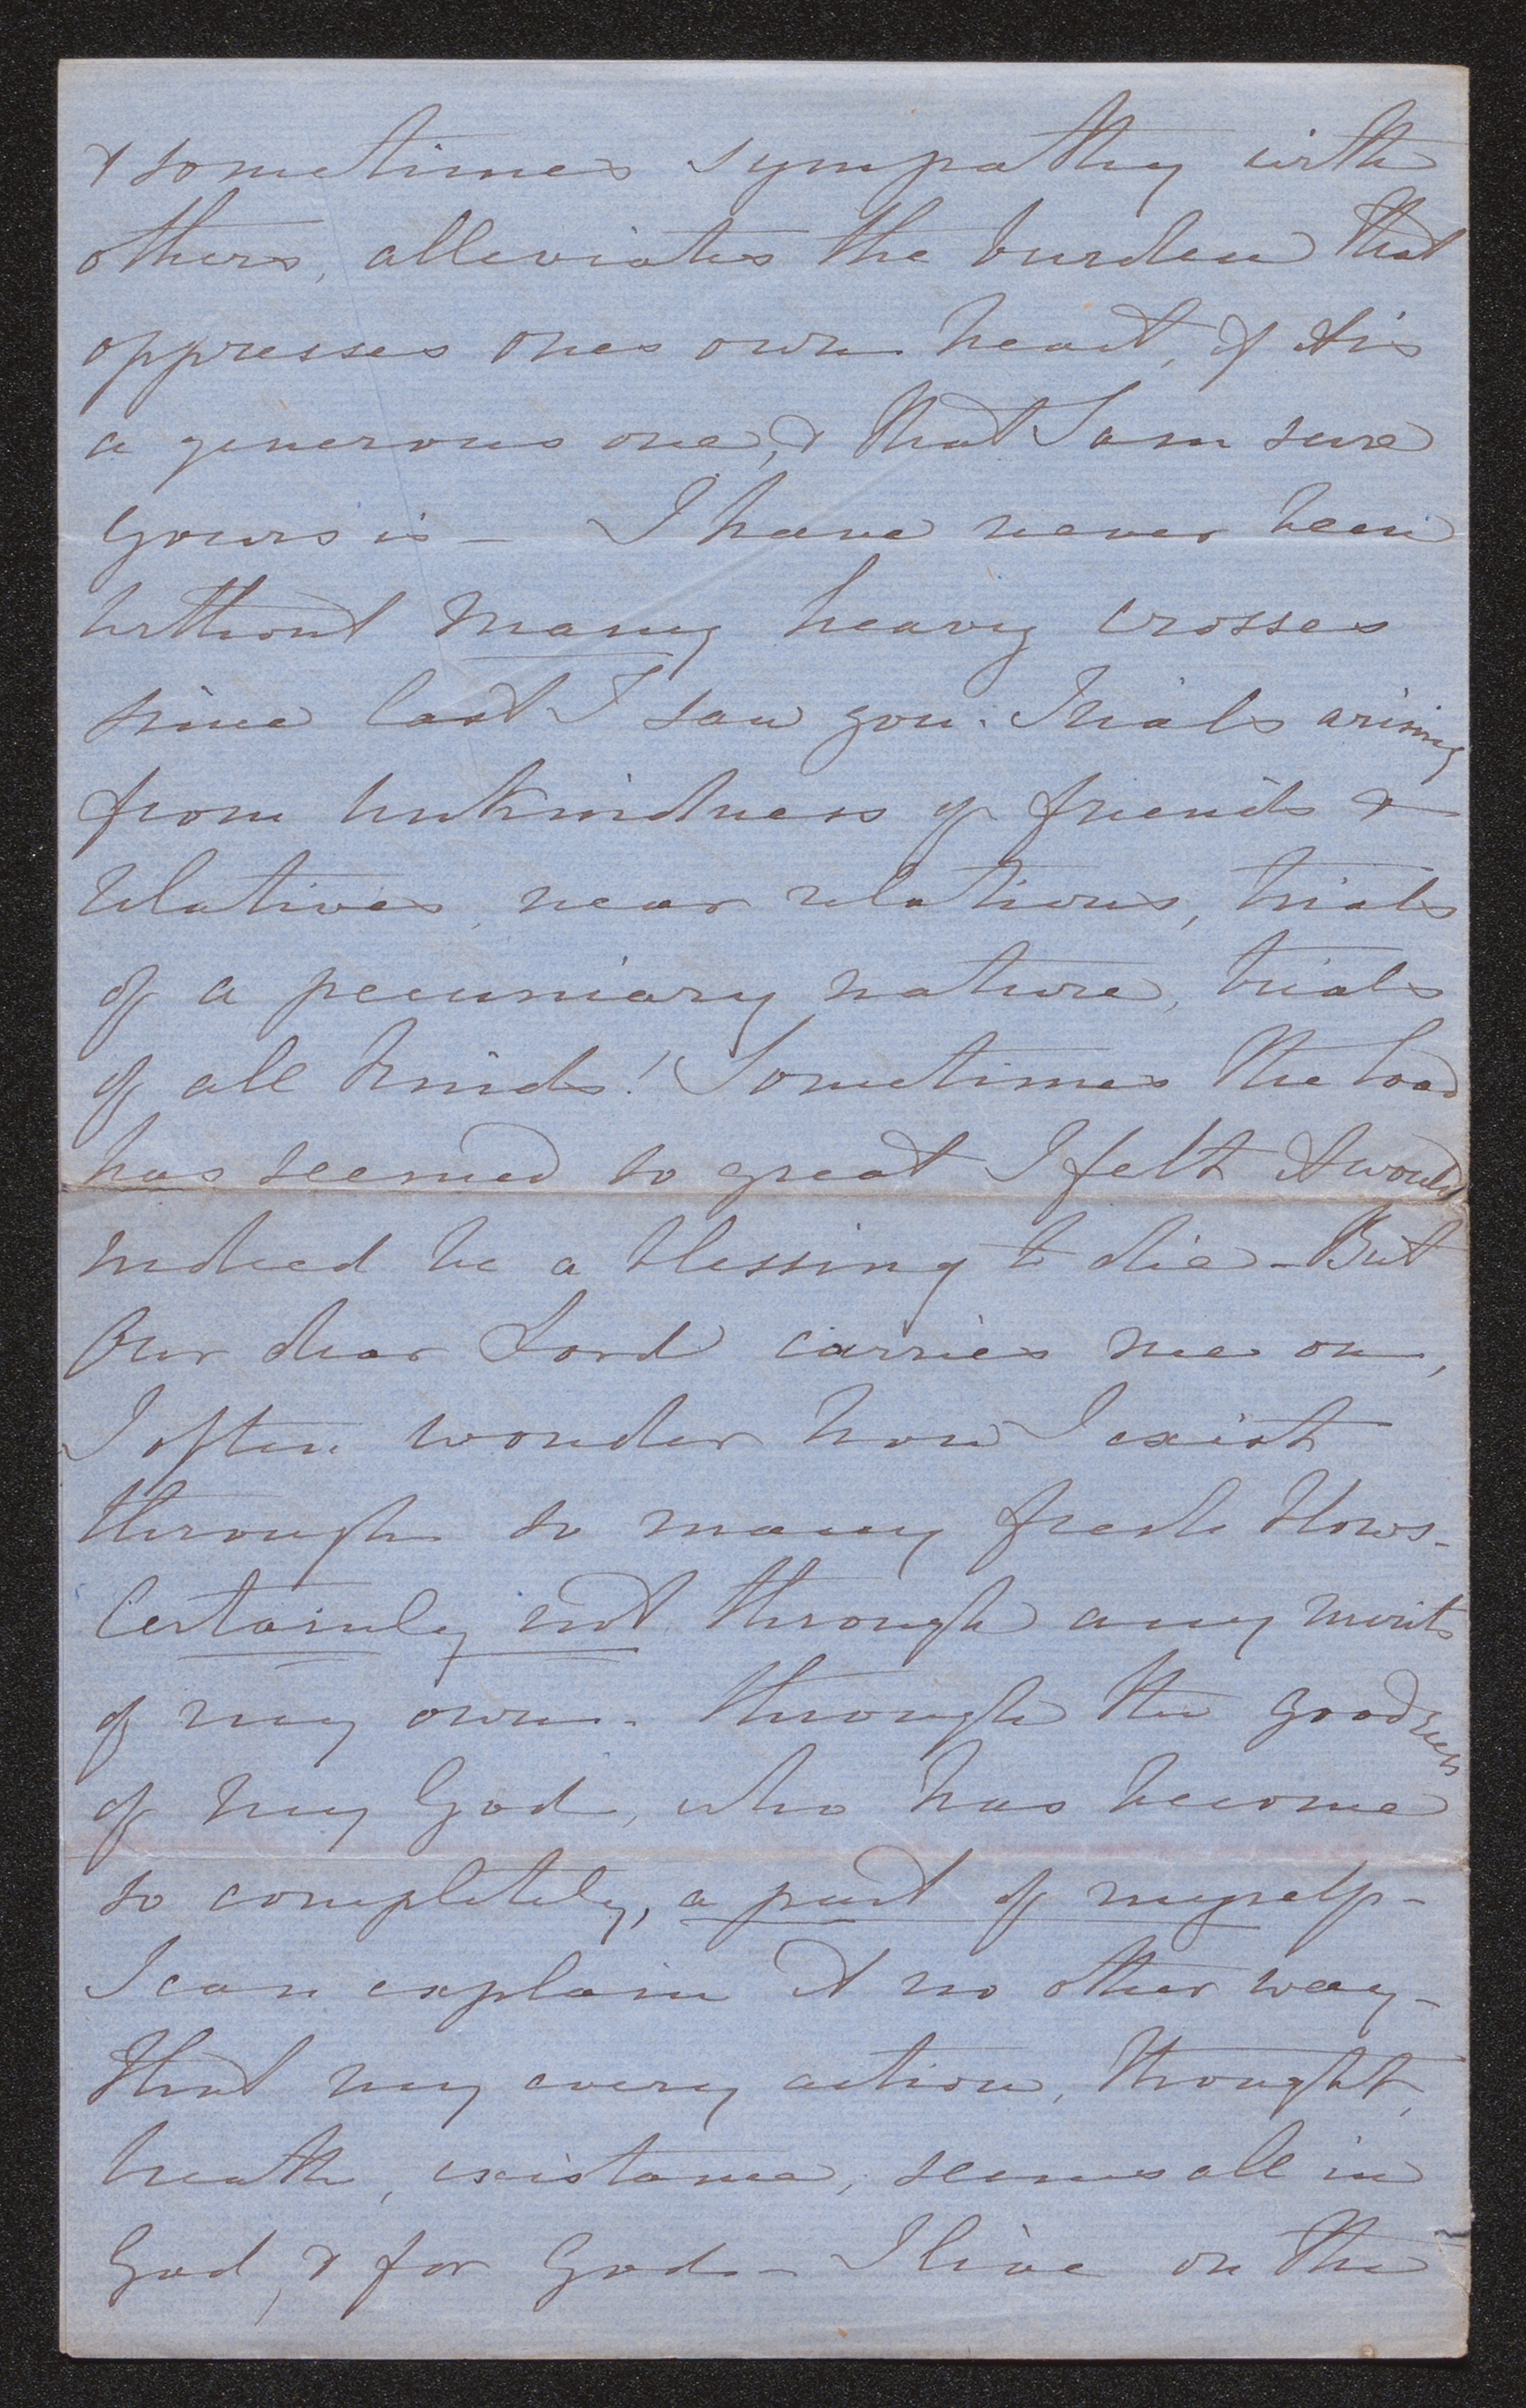 & sometimes sympathy with
others, alleviates the burden that
oppresses ones own heart, if tis
a generous one, & that I am sure
yours is - I have never been
without many heavy crosses
since last I saw you. Trials arising
from unkindness of friends &
relatives, near relations, trials
of a pecuniary nature, trials
of all kinds! Sometimes the load
has seemed so great I felt it would
indeed be a blessing to die - But
Our dear Lord carries me on,
I often wonder how I exist
through so many fresh blows -
Certainly not through any merits
of my own - through the goodness
of my God, who has become
so completely, a part of myself -
I can explain it no other way -
that my every action, thought,
breath, existance, seems all in
God, & for God - I live on the